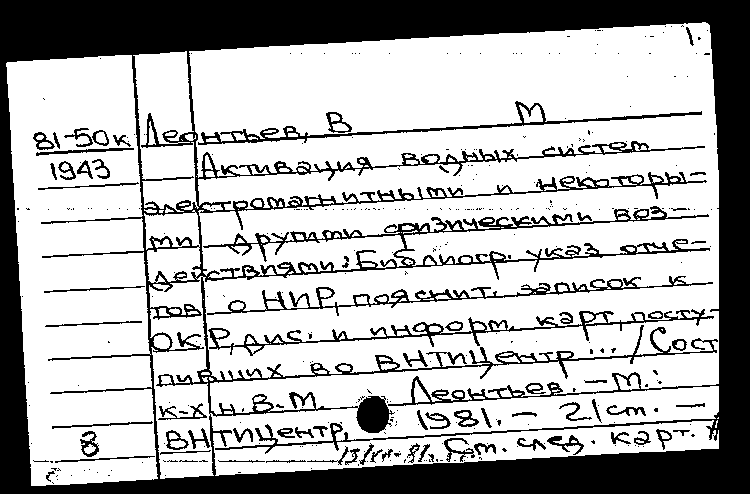 1.
81-50к Леонтьев, В М
1943 Активация водных систем
электромагнитными и некоторы-
ми другими физическими воз-
действиями: Библиогр. указ. отче-
тов о НИР, пояснит. записок к
ОКР, дис. и информ. карт, посту-
пивших во ВНТИЦентр... / Сост
к-х.н. В.М. Леонтьев. - М.:
8 ВНТИЦентр, 1981. - 21 ст. -
Ст. след. карт.